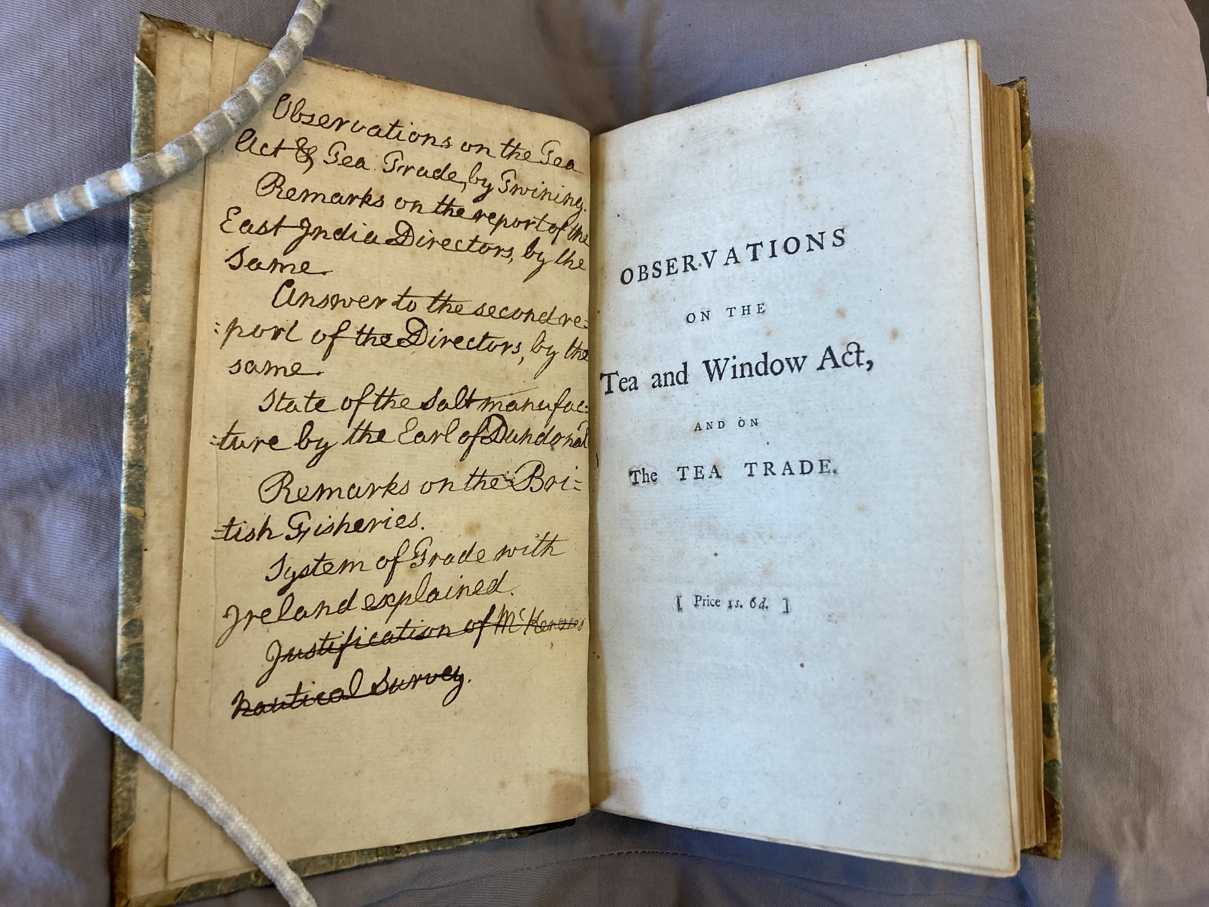 Observations on the Tea
Act & Tea Trade, by Twining.
Remarks on the report of the
East India Directors, by the
same.
Answer to the second re-
:port of the Directors, by the
same.
State of the Salt manufac-
:ture by the Earl of Dundonal
Remarks on the Bri-
-tish Fisheries.
System of Trade with
Ireland explained.
Justification of McKenzies
nautical Survey.
OBSERVATIONS
ON THE
Tea and Window Act,
AND ON
The TEA TRADE.
[ Price 1s. 6d. ]